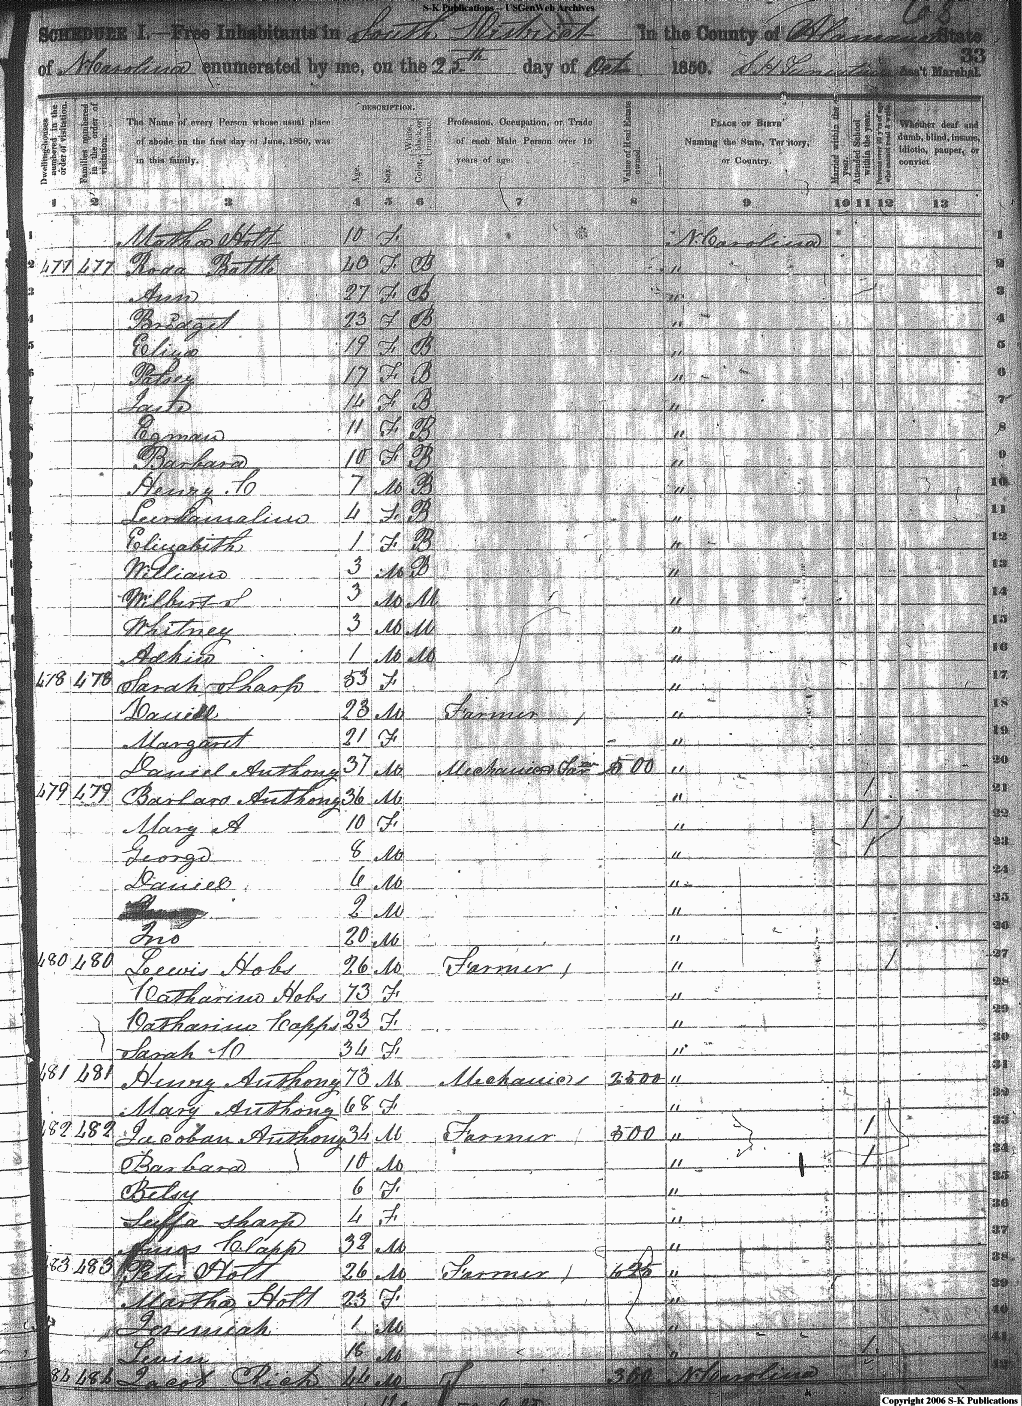 S-K Publications - USGenWeb Archives
68
SCHEDULE I.—Free Inhabitants in South District in the County of Alamance State
of N. Carolina enumerated by me, on the 25th day of Oct 1850. Ass't Marshal. 33
Dwelling-houses numbered in the order of visitation.
Families numbered in the order of visitation.
The Name of every Person whose usual place of abode on the first day of June, 1850, was in this family.
DESCRIPTION.
Age.
Sex.
Color
Profession, Occupation, or Trade of each Male Person over 15 years of age.
Value of Real Estate owned.
PLACE OF BIRTH Naming the State, Territory, or Country.
Married within the year.
Attended School within the year.
Whether deaf and dumb, blind, insane, idiotic, pauper, or convict.
1 2 3 4 5 6 7 8 9 10 11 12 13
1 Matha Holt 10 F N. Carolina 1
2 477 477 Roda Battle 40 F B " 2
3 Ann 27 F B " 3
4 Bridget 23 F B " 4
5 Eliza 19 F B " 5
6 Patsey 17 F B " 6
7 14 F B " 7
8 11 F B " 8
9 Barbara 10 F B " 9
Henry C 7 M B " 10
4 F B " 11
Elizabith 1 F B " 12
William 3 M B " 13
Wilbert S 3 M M " 14
Whitney 3 M M " 15
1 M M " 16
478 478 Sarah Sharp 53 F " 17
Daniel 23 M Farmer / " 18
Margaret 21 F " 19
Daniel Anthony 37 M Mechanics 500 " 20
479 479 Anthony 36 M " / 21
Mary A 10 F " / 22
George 8 M " / 23
Daniel 6 M " 24
2 M " 25
Jno 20 M " 26
480 480 Lewis Hobs 26 M Farmer / " / 27
Catharine Hobs 73 F " 28
Catharine Capps 23 F " 29
Sarah C 34 F " 30
481 481 Henry Anthony 73 M Mechanics 2500 " 31
Mary Anthony 68 F " 32
482 482 Anthony 34 M Farmer / 500 " / 33
Barbara 10 M " / 34
Betsy 6 F " 35
sharp 4 F " 36
Amos Clapp 38 M " 37
483 483 Peter Holt 26 M Farmer / 625 " 38
Martha Holt 23 F " 39
Jeremiah 1 M " 40
Levin 18 M " / 41
484 484 Jacob Rich 44 M 300 N. Carolina 42
Copyright 2006 S-K Publications